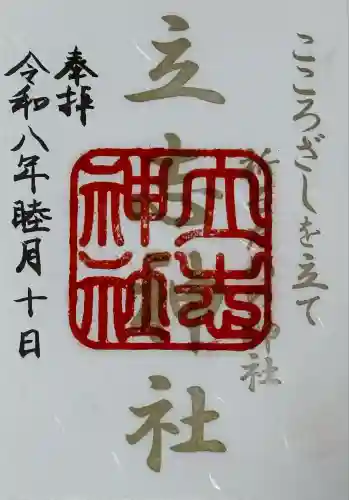 こころざしを立て
祈 神社
立志神社
立志
神社
奉拝
令和八年睦月十日